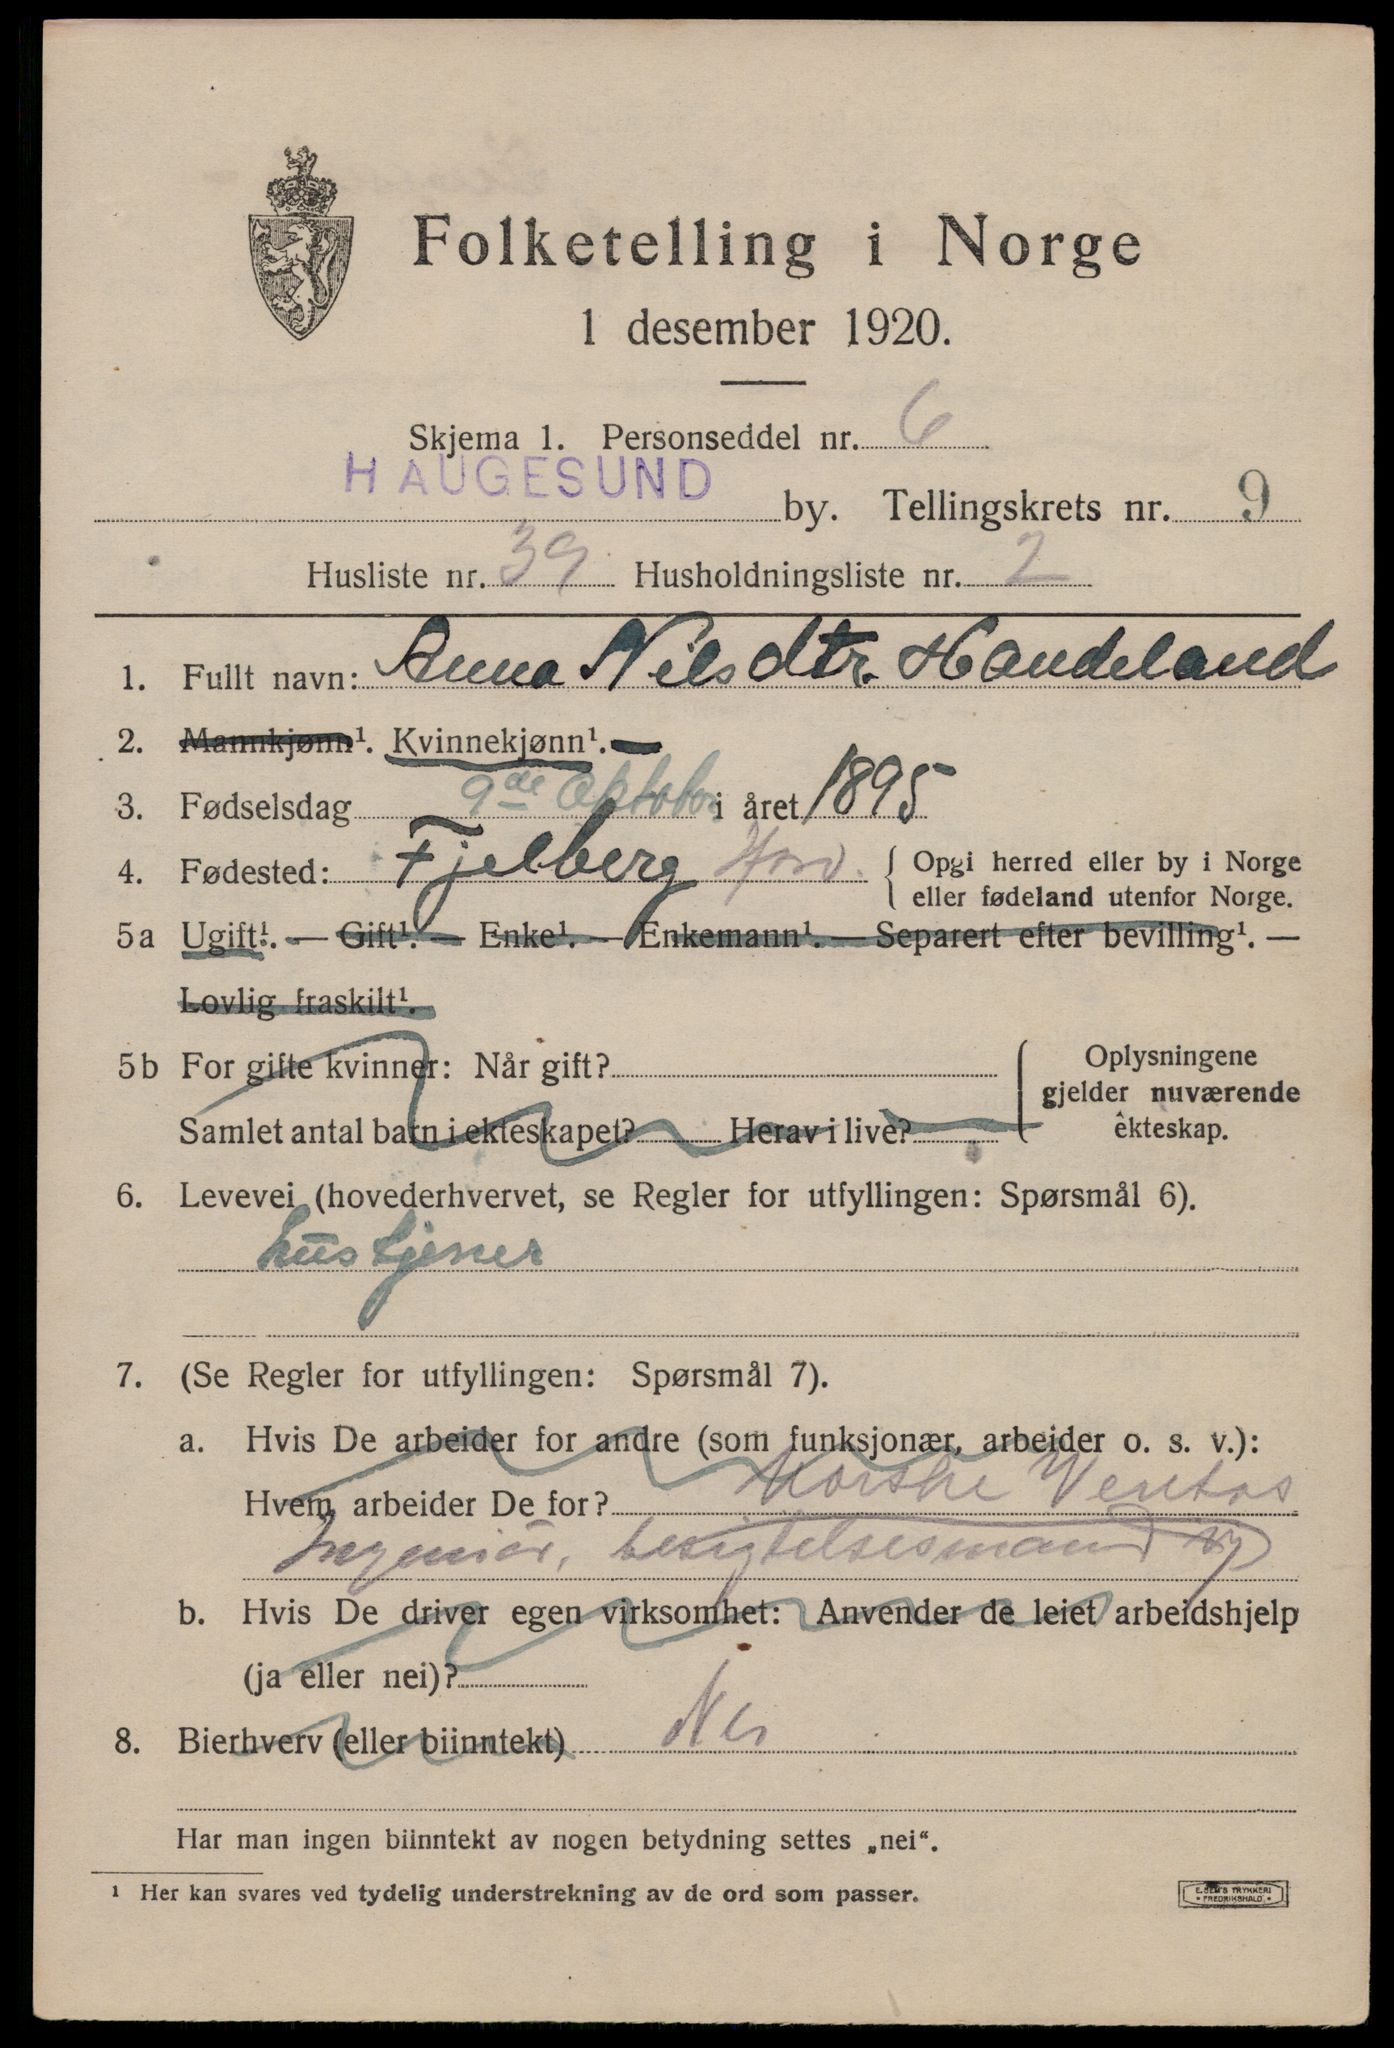 Folketelling i Norge
1 desember 1920.
Skjema 1. Personseddel nr. 6
HAUGESUND by. Tellingskrets nr. 9
Husliste nr. 39 Husholdningsliste nr. 2
1. Fullt navn: Anna Nilsdtr. Handeland
2. Mannkjønn¹. Kvinnekjønn¹.
3. Fødselsdag 9de Oktober i året 1895
4. Fødested: Fjelberg Hord. { Opgi herred eller by i Norge
eller fødeland utenfor Norge.
5a Ugift¹. — Gift¹. — Enke¹. — Enkemann¹. — Separert efter bevilling¹. —
Lovlig fraskilt¹.
5b For gifte kvinner: Når gift? Oplysningene
gjelder nuværende
Samlet antal barn i ekteskapet? Herav i live? ekteskap.
6. Levevei (hovederhvervet, se Regler for utfyllingen: Spørsmål 6).
hustjener
7. (Se Regler for utfyllingen: Spørsmål 7).
a. Hvis De arbeider for andre (som funksjonær, arbeider o. s. v.):
Hvem arbeider De for? Norske Veritas
Ingeniør, besigtelsesmand
b. Hvis De driver egen virksomhet: Anvender de leiet arbeidshjelp
(ja eller nei)?
8. Bierhverv (eller biinntekt) Nei
Har man ingen biinntekt av nogen betydning settes „nei“.
¹ Her kan svares ved tydelig understrekning av de ord som passer.
E. SEM'S TRYKKERI
• FREDRIKSHALD •